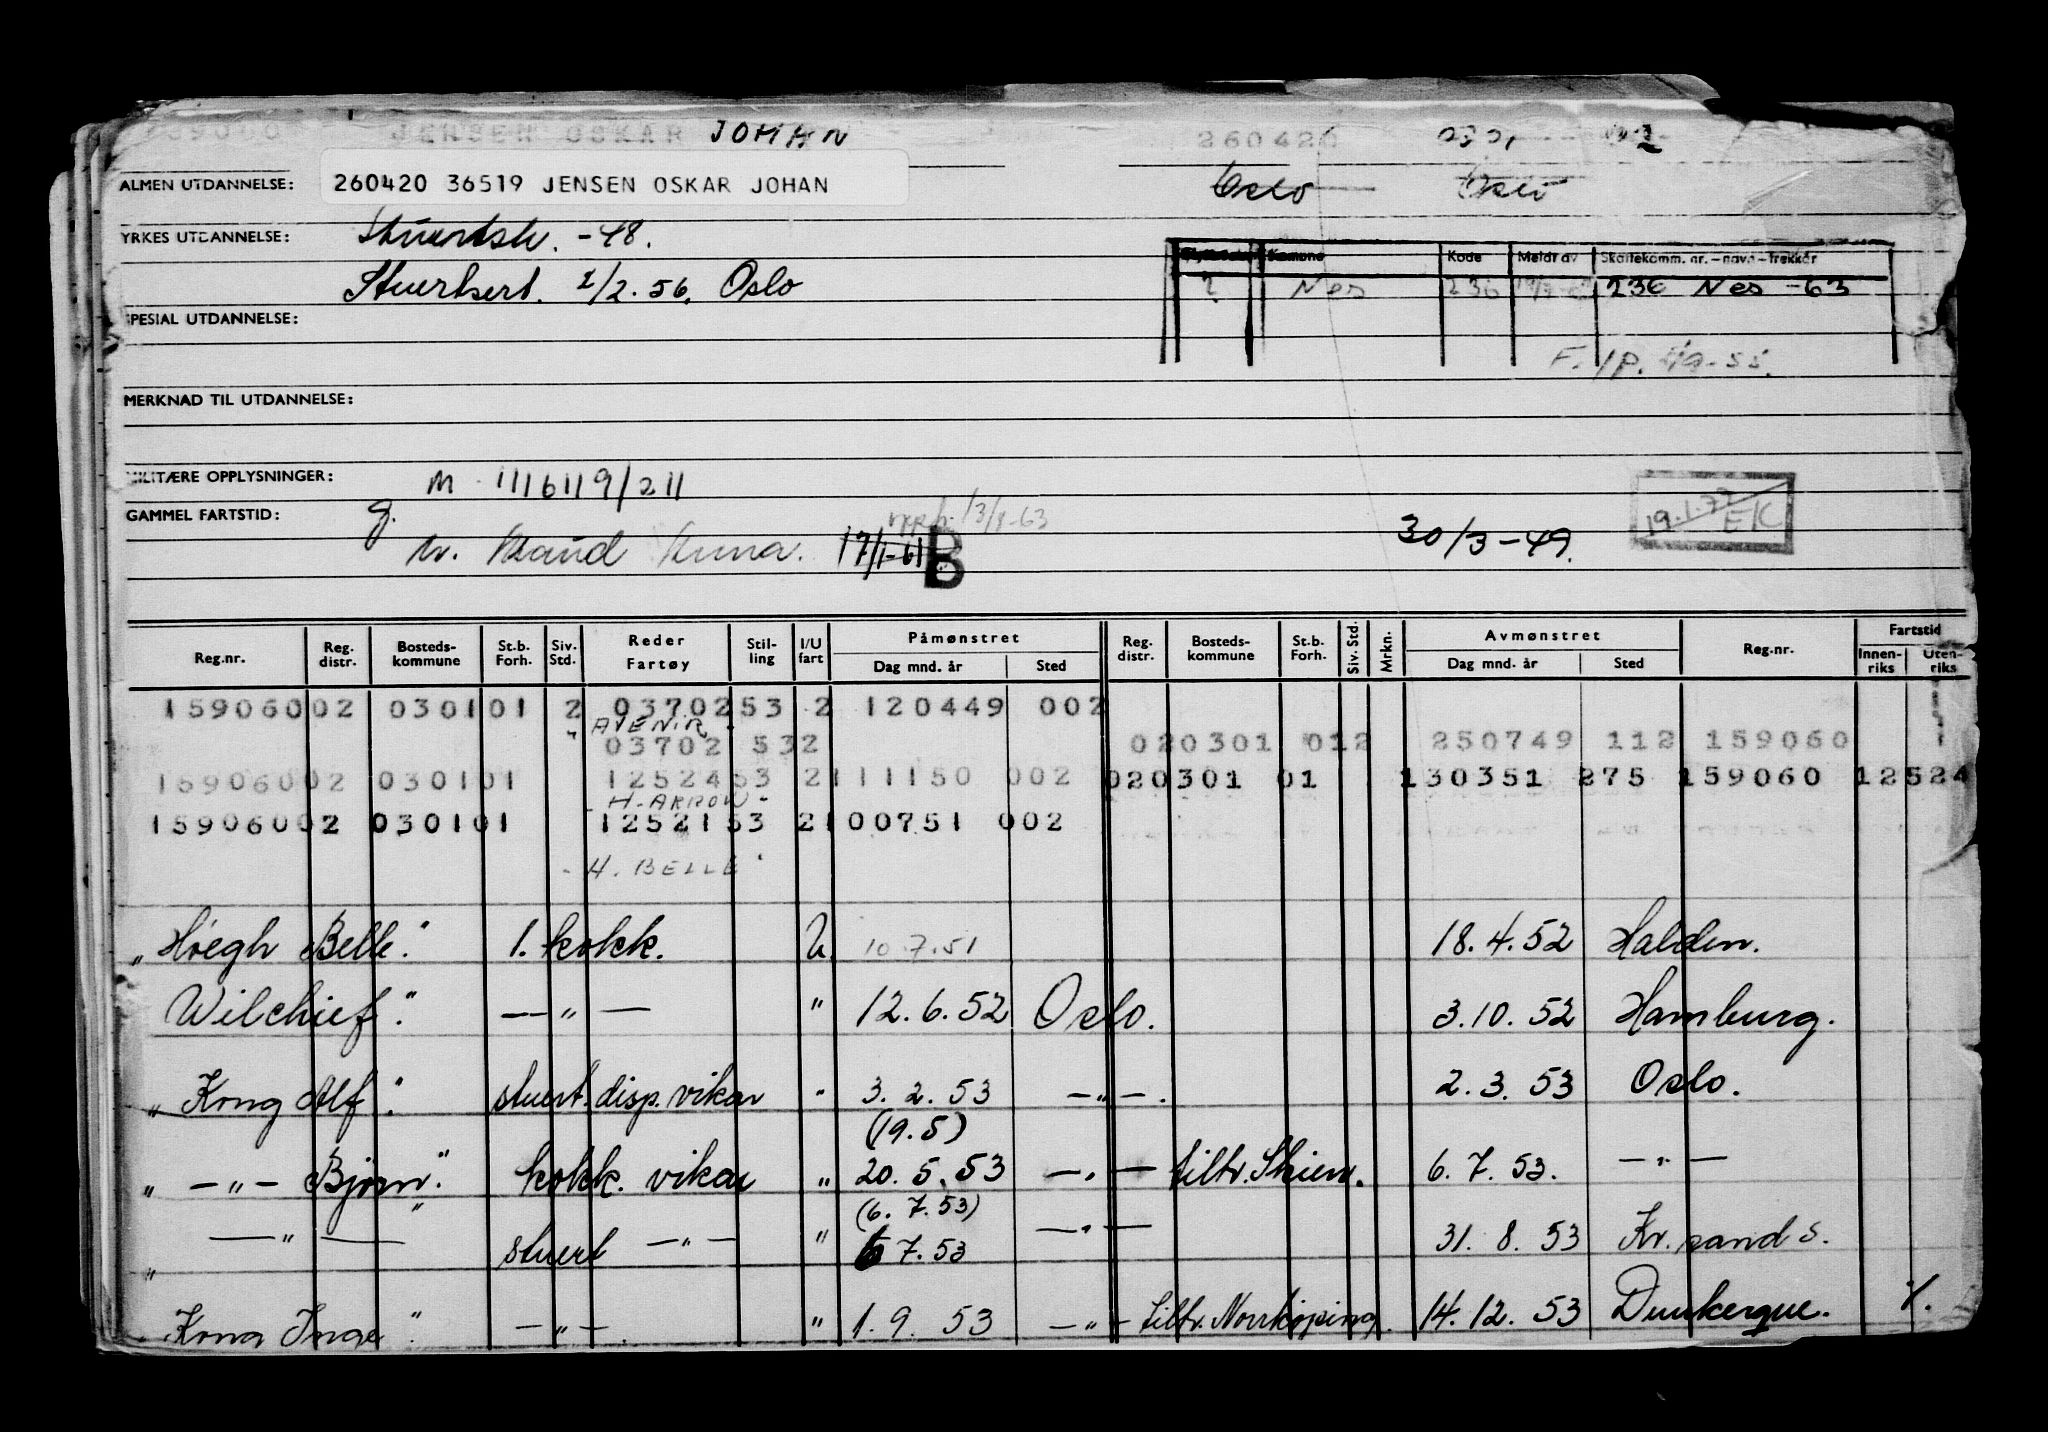 JENSEN OSKAR JOHAN 260420
ALMEN UTDANNELSE: 260420 36519 JENSEN OSKAR JOHAN Oslo Oslo
YRKES UTDANNELSE: Stuertsk. -48.
Kode Meldt av Skattekomm. nr. - navn - trekkår
Stuertsert. 2/2.56. Oslo
2 Nes 236 236 Nes -63
SPESIAL UTDANNELSE:
F. 1p. -55.
MERKNAD TIL UTDANNELSE:
MILITÆRE OPPLYSNINGER: M 1116119/211
GAMMEL FARTSTID: g. 13/8-63
17/1-61 B 30/3-49. 19.1.72 EK
Reg.nr. Reg. distr. Bosteds-kommune St.b. Forh. Siv. Std. Reder Fartøy Stil-ling I/U fart Påmønstret Dag mnd. år Sted Reg. distr. Bosteds-kommune St.b. Forh. Siv. Std. Mrkn. Avmønstret Dag mnd. år Sted Reg.nr. Fartstid Innen-riks Uten-riks
159060 02 0301 01 2 03702 53 2 120449 002
"AVENIR"
03702 53 2 02 0301 01 2 250749 112 159060
159060 02 0301 01 12524 53 2 111150 002 02 0301 01 130351 275 159060 12524
- H. ARROW -
159060 02 0301 01 12521 53 2 100751 002
- H. BELLE
"Høegh Belle." 1. kokk. U. 10.7.51 18.4.52 Halden.
Wilchief." — " — " 12.6.52 Oslo. 3.10.52 Hamburg.
"Kong Alf". stuert. disp. vikar " 3.2.53 — " — . 2.3.53 Oslo.
(19.5)
" — " — Bjørn." kokk. vikar " 20.5.53 — " — tiltr. Skien. 6.7.53. — " —
(6.7.53)
" — " — " stuert — " — " 6 7.53 — " — 31.8.53 Kr.sand S.
Kong Inge". — " — . " 1.9.53 — " — tiltr. Norrköping. 14.12.53 Dunkerque. %.